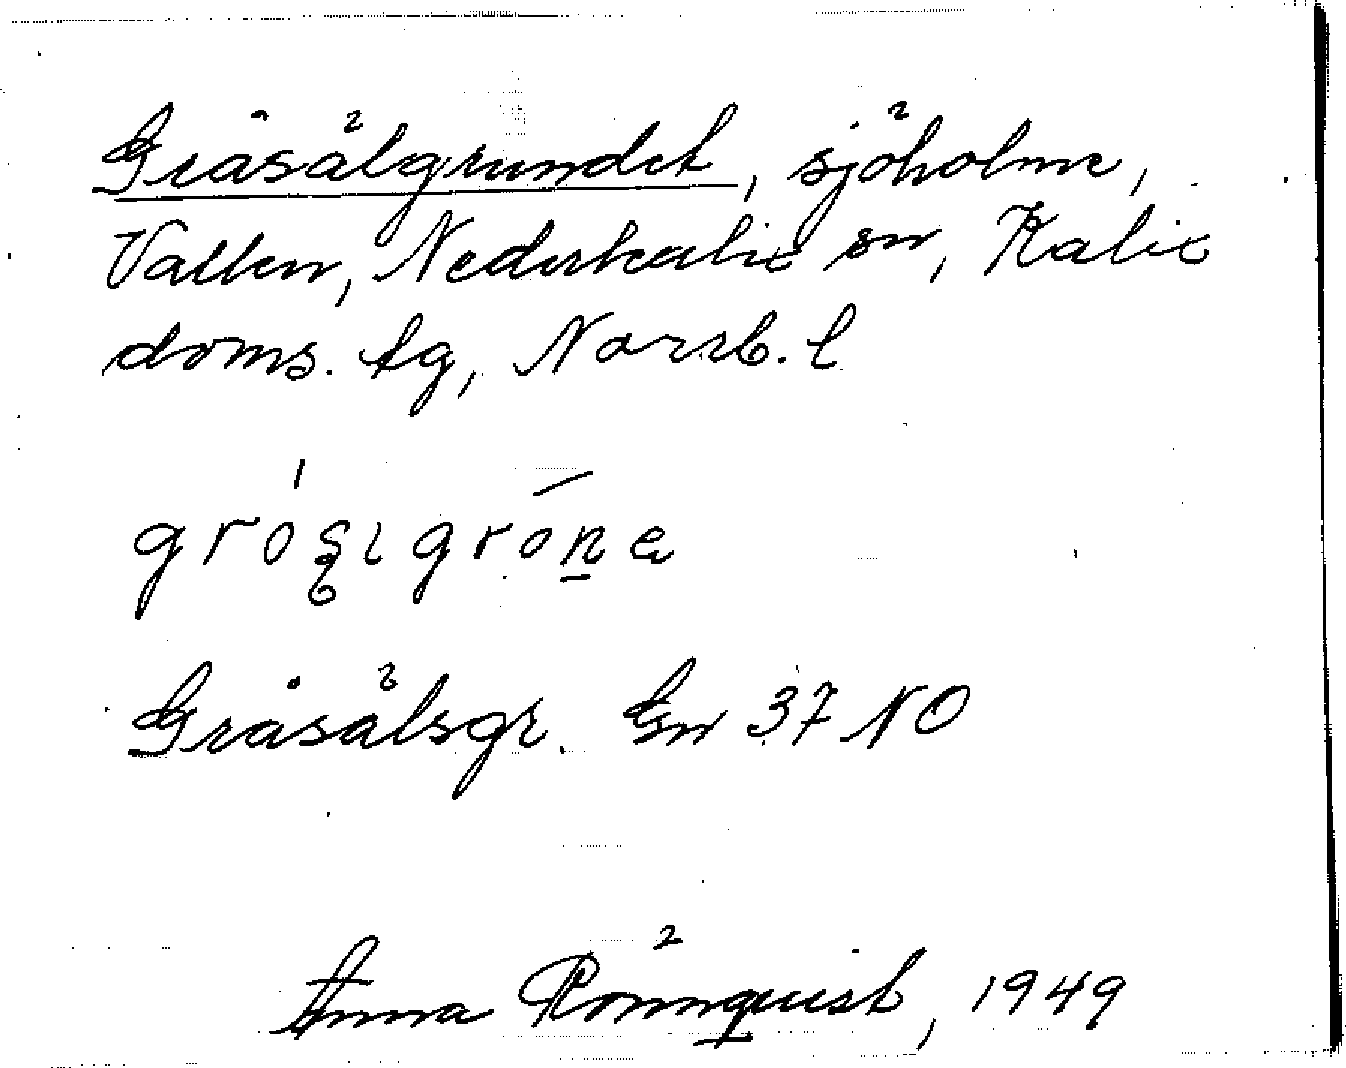 Gråsälgrundet, sjöholme,
Vallen, Nederkalix sn, Kalix
doms. tg, Norrb. l
Gråsälsgr. Gn 37 NO
Anna Rönnquist, 1949